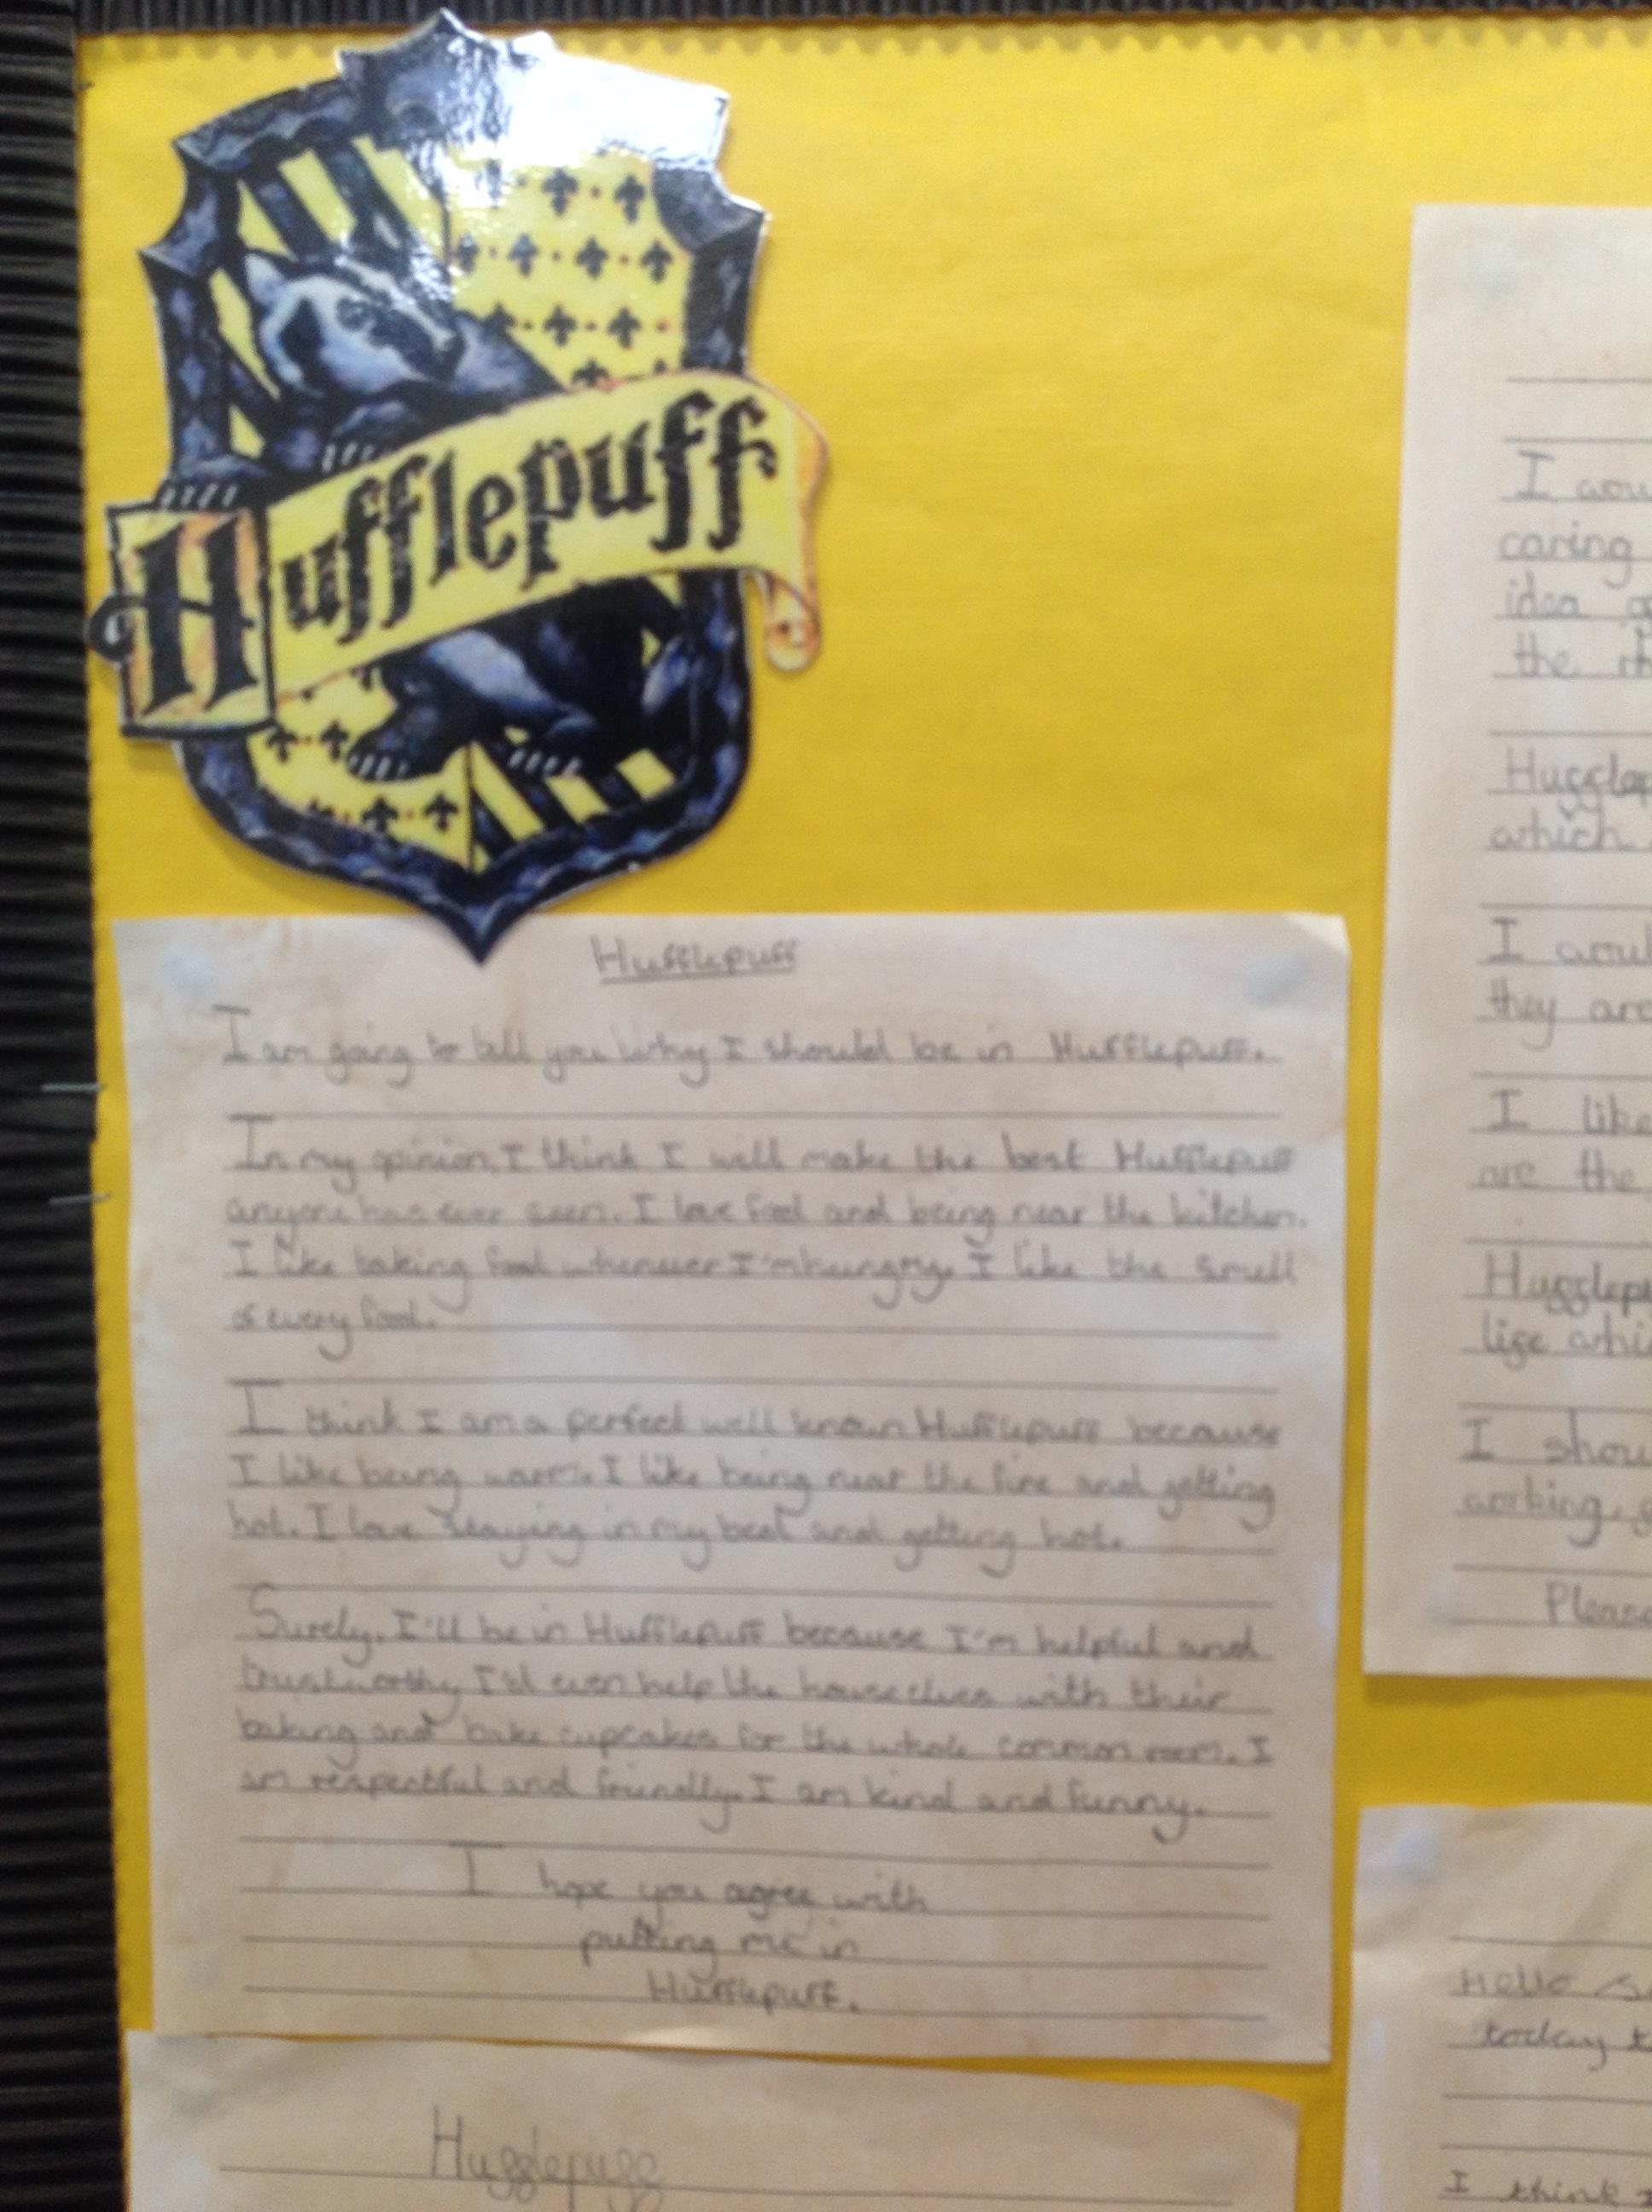 Hufflepuff
Hufflepuff
I am going to tell you why I should be in Hufflepuff.
In my opinion, I think I will make the best Hufflepuff
anyone has ever seen. I love food and being near the kitchen.
I like taking food whenever I'm hungry. I like the smell
of every food.
I think I am a perfect well known Hufflepuff because
I like being warm. I like being near the fire and getting
hot. I love staying in my bed and getting hot.
Surely, I'll be in Hufflepuff because I'm helpful and
trustworthy I'd even help the house elves with their
baking and bake cupcakes for the whole common room. I
am respectful and friendly. I am kind and funny.
I hope you agree with
putting me in
Hufflepuff.
Hufflepuff
I
caring
idea
the
which
I
they are
I like
are the
life
I
working,
Pleas
Hello
today
I think